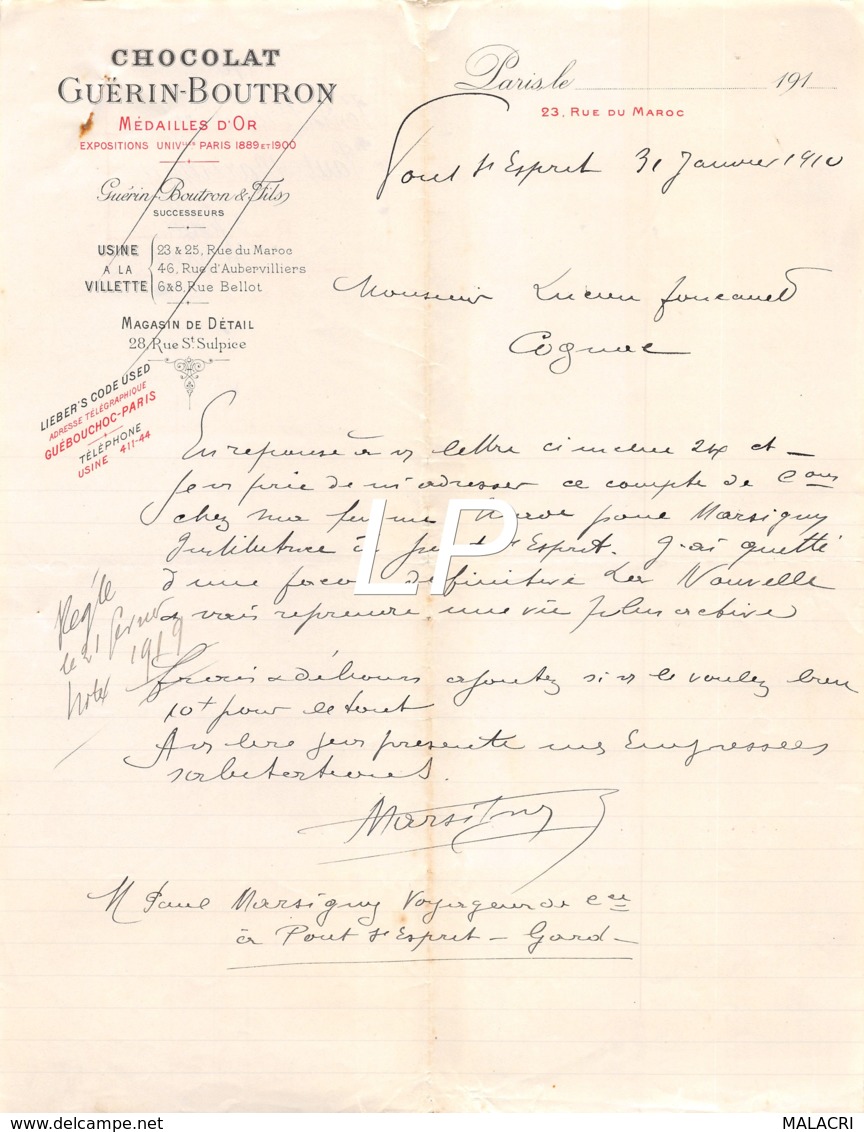 CHOCOLAT
GUËRIN-BOUTRON
MÉDAILLES D'OR
EXPOSITIONS UNIVlles PARIS 1889 ET 1900
Guérin-Boutron & Fils
SUCCESSEURS
USINE
A LA
VILLETTE
23 & 25, Rue du Maroc
46, Rue d'Aubervilliers
6 & 8, Rue Bellot
MAGASIN DE DÉTAIL
28, Rue St Sulpice
LIEBER'S CODE USED
ADRESSE TÉLÉGRAPHIQUE
GUÉBOUCHOC-PARIS
TÉLÉPHONE
USINE 411-44
Paris, le 191
23, RUE DU MAROC
Pont St Esprit 31 Janvier 1910
Monsieur Lucien Foucauld
Cognac
En reponse à v/ lettre 24 ct
je vs prie de m'adresser ce compte de Cons
chez ma femme pour Marsigny
Institutrice à St Esprit. J'ai quitté
d'une facon definitive La Nouvelle
& vais reprendre une vie plus active
Frais & débours ajoutez si vs le voulez bien
10+ pour le tout
A vs lire je vs presente mes Empressées
salutations.
Marsigny
M Paul Marsigny Voyageur de Cce
à Pont St Esprit - Gard -
Réglé
le 21
LP
MALACRI